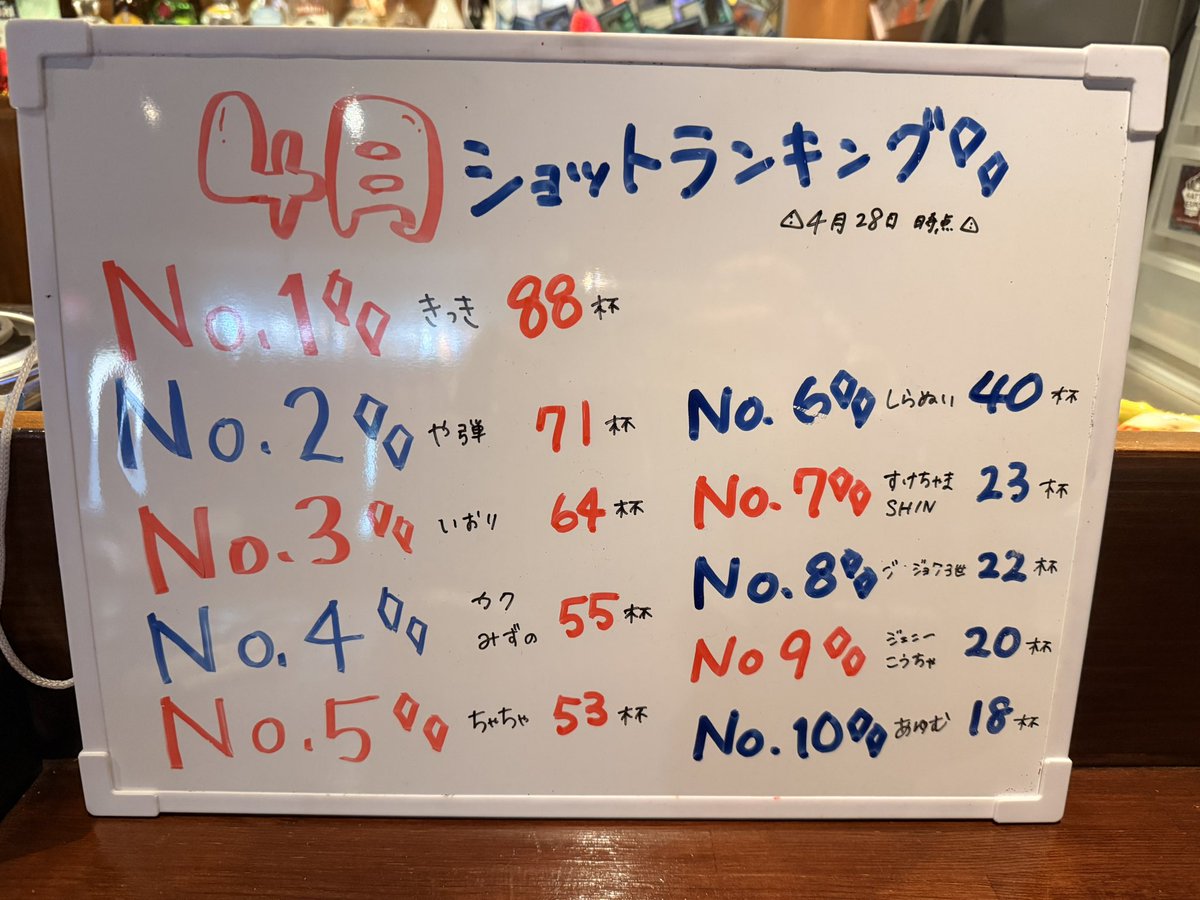 4月 ショットランキング
⚠4月28日 時点⚠
No.1 きっき 88杯
No.2 や弾 71杯
No.3 いおり 64杯
No.4 カク みずの 55杯
No.5 ちゃちゃ 53杯
No.6 しらぬい 40杯
No.7 すけちゃま SHIN 23杯
No.8 ブ・ジョク3世 22杯
No9 ジェニー こうちゃ 20杯
No.10 あゆむ 18杯